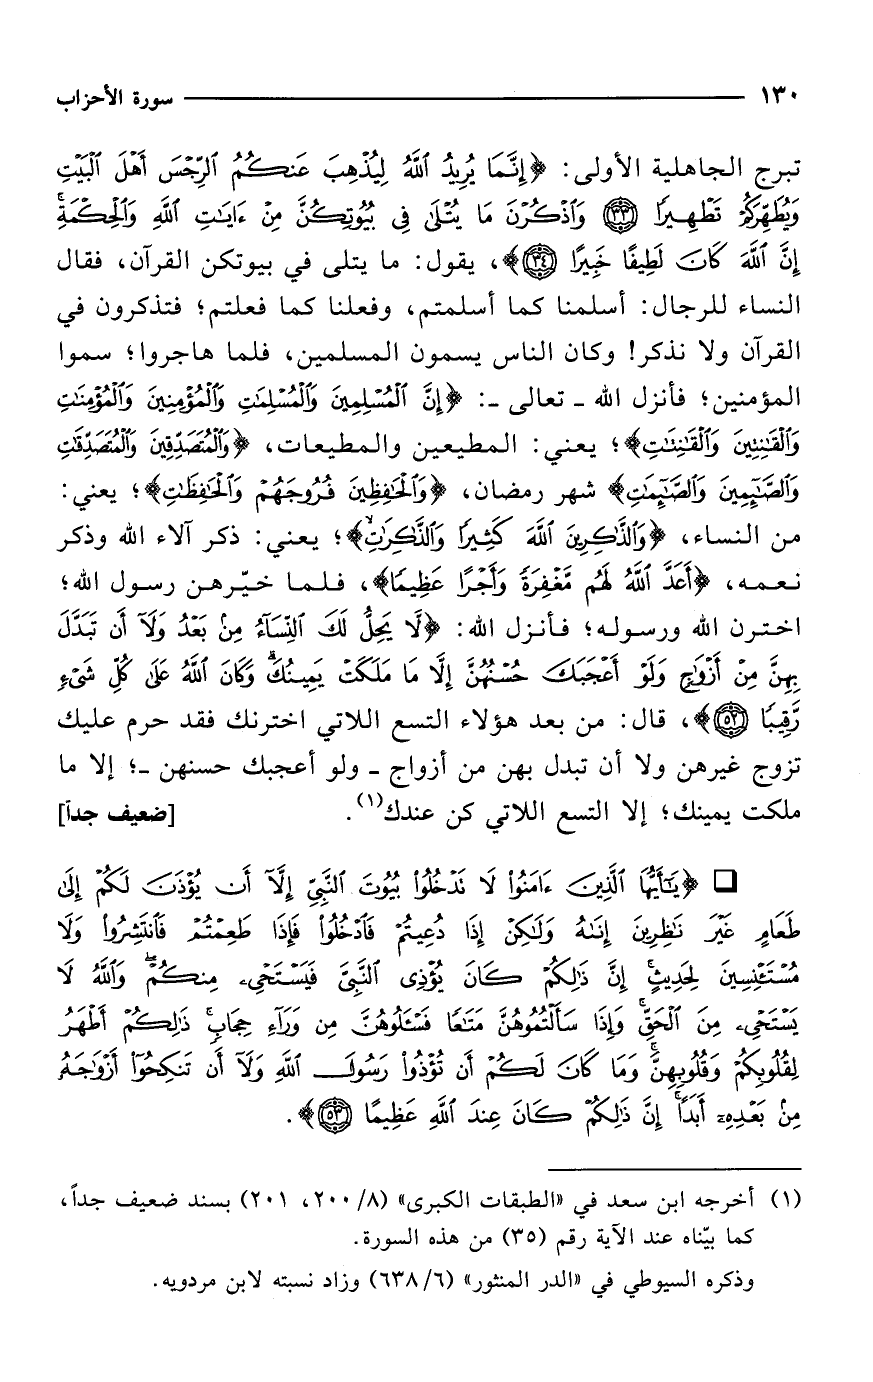 ١٣٠ سورة الأحزاب
تبرج الجاهلية الأولى: ﴿إِنَّمَا يُرِيدُ ٱللَّهُ لِيُذْهِبَ عَنكُمُ ٱلرِّجْسَ أَهْلَ ٱلْبَيْتِ
وَيُطَهِّرَكُمْ تَطْهِيرًا ﴿٣٣﴾ وَٱذْكُرْنَ مَا يُتْلَىٰ فِى بُيُوتِكُنَّ مِنْ ءَايَـٰتِ ٱللَّهِ وَٱلْحِكْمَةِۚ
إِنَّ ٱللَّهَ كَانَ لَطِيفًا خَبِيرًا ﴿٣٤﴾﴾، يقول: ما يتلى في بيوتكن القرآن، فقال
النساء للرجال: أسلمنا كما أسلمتم، وفعلنا كما فعلتم؛ فتذكرون في
القرآن ولا نذكر! وكان الناس يسمون المسلمين، فلما هاجروا؛ سموا
المؤمنين؛ فأنزل الله ـ تعالى ـ: ﴿إِنَّ ٱلْمُسْلِمِينَ وَٱلْمُسْلِمَـٰتِ وَٱلْمُؤْمِنِينَ وَٱلْمُؤْمِنَـٰتِ
وَٱلْقَـٰنِتِينَ وَٱلْقَـٰنِتَـٰتِ﴾؛ يعني: المطيعين والمطيعات، ﴿وَٱلْمُتَصَدِّقِينَ وَٱلْمُتَصَدِّقَـٰتِ
وَٱلصَّـٰٓئِمِينَ وَٱلصَّـٰٓئِمَـٰتِ﴾ شهر رمضان، ﴿وَٱلْحَـٰفِظِينَ فُرُوجَهُمْ وَٱلْحَـٰفِظَـٰتِ﴾؛ يعني:
من النساء، ﴿وَٱلذَّٰكِرِينَ ٱللَّهَ كَثِيرًا وَٱلذَّٰكِرَٰتِ﴾؛ يعني: ذكر آلاء الله وذكر
نعمه، ﴿أَعَدَّ ٱللَّهُ لَهُم مَّغْفِرَةً وَأَجْرًا عَظِيمًا﴾، فلما خيّرهن رسول الله؛
اخترن الله ورسوله؛ فأنزل الله: ﴿لَّا يَحِلُّ لَكَ ٱلنِّسَآءُ مِنۢ بَعْدُ وَلَآ أَن تَبَدَّلَ
بِهِنَّ مِنْ أَزْوَٰجٍ وَلَوْ أَعْجَبَكَ حُسْنُهُنَّ إِلَّا مَا مَلَكَتْ يَمِينُكَۗ وَكَانَ ٱللَّهُ عَلَىٰ كُلِّ شَىْءٍ
رَّقِيبًا ﴿٥٢﴾﴾، قال: من بعد هؤلاء التسع اللاتي اخترنك فقد حرم عليك
تزوج غيرهن ولا أن تبدل بهن من أزواج ـ ولو أعجبك حسنهن ـ؛ إلا ما
ملكت يمينك؛ إلا التسع اللاتي كن عندك(١). [ضعيف جداً]
□ ﴿يَـٰٓأَيُّهَا ٱلَّذِينَ ءَامَنُوا۟ لَا تَدْخُلُوا۟ بُيُوتَ ٱلنَّبِىِّ إِلَّآ أَن يُؤْذَنَ لَكُمْ إِلَىٰ
طَعَامٍ غَيْرَ نَـٰظِرِينَ إِنَىٰهُ وَلَـٰكِنْ إِذَا دُعِيتُمْ فَٱدْخُلُوا۟ فَإِذَا طَعِمْتُمْ فَٱنتَشِرُوا۟ وَلَا
مُسْتَـْٔنِسِينَ لِحَدِيثٍۚ إِنَّ ذَٰلِكُمْ كَانَ يُؤْذِى ٱلنَّبِىَّ فَيَسْتَحْىِۦ مِنكُمْۖ وَٱللَّهُ لَا
يَسْتَحْىِۦ مِنَ ٱلْحَقِّۚ وَإِذَا سَأَلْتُمُوهُنَّ مَتَـٰعًا فَسْـَٔلُوهُنَّ مِن وَرَآءِ حِجَابٍۚ ذَٰلِكُمْ أَطْهَرُ
لِقُلُوبِكُمْ وَقُلُوبِهِنَّۚ وَمَا كَانَ لَكُمْ أَن تُؤْذُوا۟ رَسُولَ ٱللَّهِ وَلَآ أَن تَنكِحُوٓا۟ أَزْوَٰجَهُۥ
مِنۢ بَعْدِهِۦٓ أَبَدًاۚ إِنَّ ذَٰلِكُمْ كَانَ عِندَ ٱللَّهِ عَظِيمًا ﴿٥٣﴾﴾.
(١) أخرجه ابن سعد في «الطبقات الكبرى» (٨/ ٢٠٠، ٢٠١) بسند ضعيف جداً،
كما بيّناه عند الآية رقم (٣٥) من هذه السورة.
وذكره السيوطي في «الدر المنثور» (٦/ ٦٣٨) وزاد نسبته لابن مردويه.